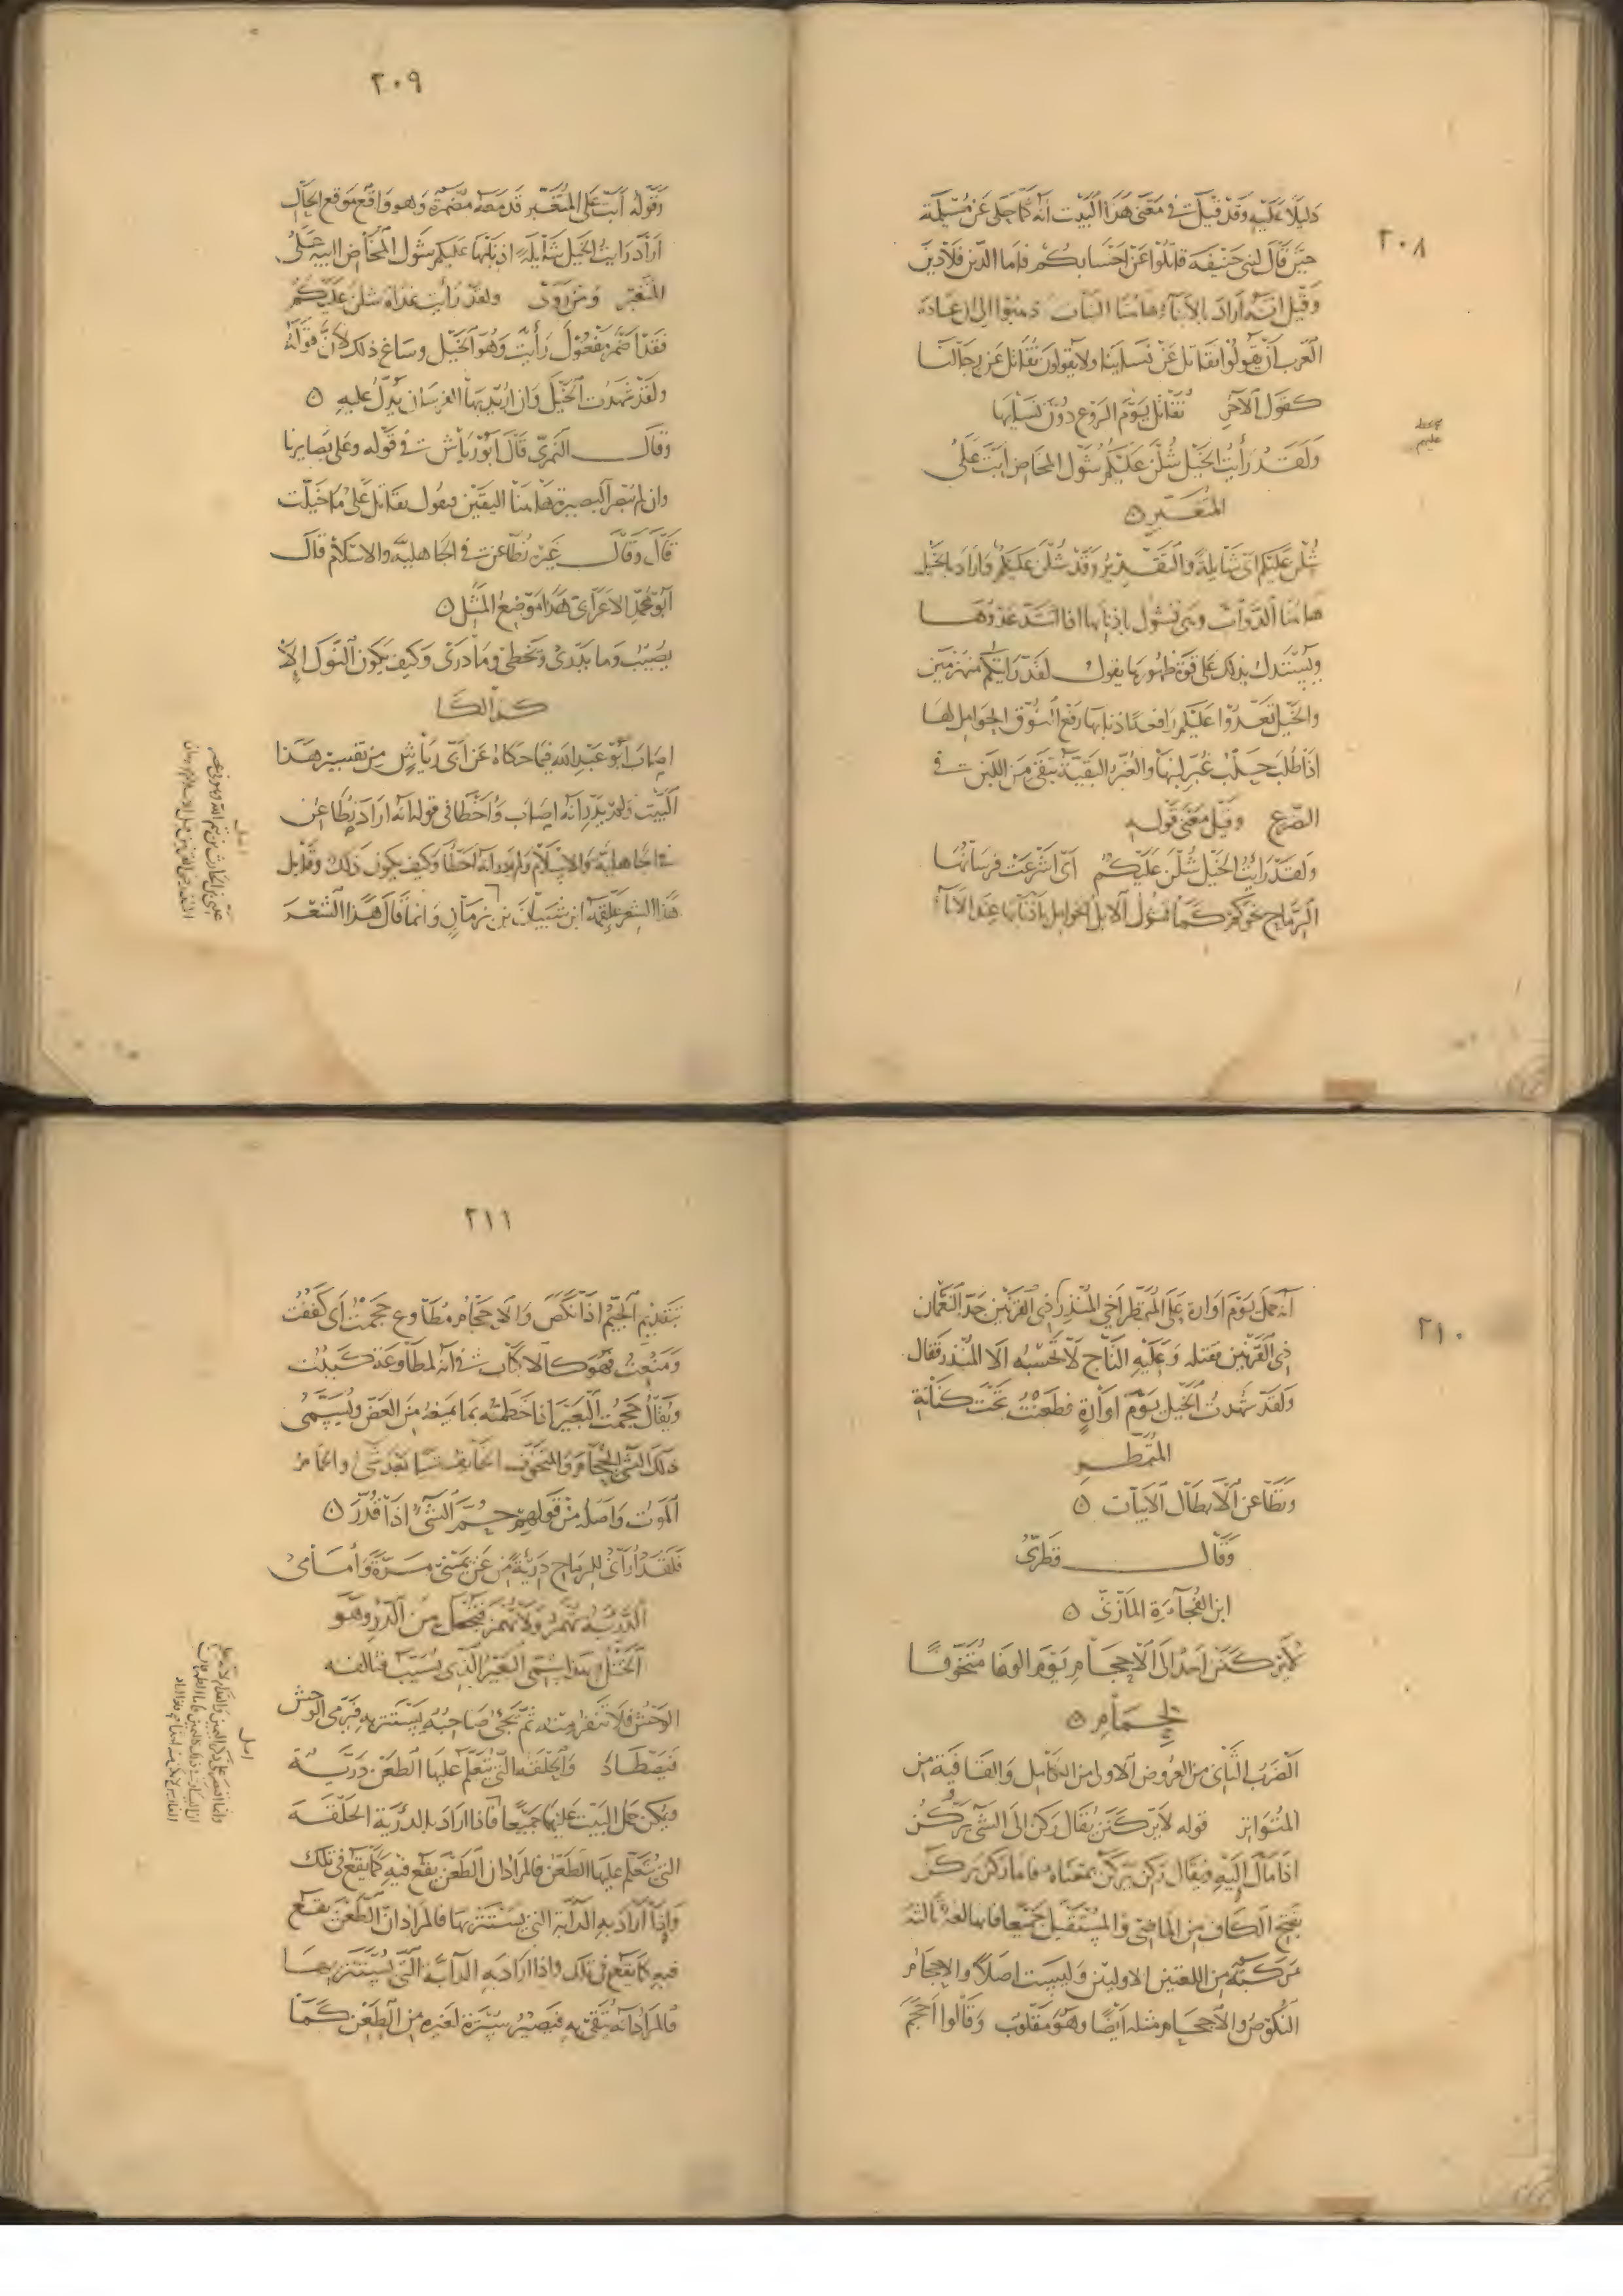 ٢٠٨
دليلا عليه وقد قيل في معنى هذا البيت انه كما حكى عن مسيلمة
حين قال لبني حنيفة قاتلوا عن احسابكم فاما الدين فلا دين
وقيل انه اراد بالابناء هاهنا البنات ذهبوا الى ان عادة
العرب ان يقولوا نقاتل عن نسائنا ولا يقولون نقاتل عن رجالنا
كقول الآخر نقاتل يوم الروع دون نسائها
ولقد رأيت الخيل شلن عليكم شول المخاض ابت على
المتغبر
شلن عليكم اي شائلة والتقدير وقد شلن عليكم فاراد بالخيل
هاهنا الدواب وهي تشول باذنابها اذا اشتد عدوها
ويستدل بذلك على قوة ظهورها يقول لقد رأيتكم منهزمين
والخيل تعدوا عليكم رافعة اذنابها رفع النوق الحوامل لها
اذا طلب حلب غبر لبنها والغبر البقية تبقى من اللبن في
الضرع وقيل معنى قوله
ولقد رأيت الخيل شلن عليكم اي اشرعت فرسانها
الرماح نحوكم كما تشول الابل الحوامل باذنابها عند الاباء
٢٠٩
وقوله ابت على المتغبر قد معه مضمرة وهو واقع موقع الحال
اراد رايت الخيل شائلة اذنابها عليكم شول المخاض ابية على
المتغبر ومن روى ولقد رأيت غداة شلن عليكم
فقد اضمر مفعول رأيت وهو الخيل وساغ ذلك لان قوله
ولقد شهدت الخيل وان اريد بها الفرسان يدل عليه
وقال النمري قال ابو رياش في قوله وعلى بصايرنا
وان لم نبصر البصيرة هاهنا اليقين فيقول نقاتل على ما خيلت
قال وقال غيره نطاعن في الجاهلية والاسلام قال
ابو محمد الاعرابي هذا موضع المثل
يصيب وما يدري ويخطي وما درى وكيف يكون النوك الا
كذالكا
اصاب ابو عبد الله فيما حكاه عن ابي رياش من تفسير هذا
البيت ولم يدر انه اصاب واخطا في قوله انه اراد نطاعن
في الجاهلية والاسلام ولم يدر انه اخطا وكيف يكون ذلك وقايل
هذا الشعر علقمة ابن شيبان بن زمان وانما قال هذا الشعر
٢١٠
انه حمل يوم اوارة على المتمطر اخي المنذر ذي القرنين جد النعمان
ذي القرنين فقتله وعليه التاج لا تحسبه الا المنذر فقال
ولقد شهدت الخيل يوم اوارة فطعنت تحت كنانة
المتمطر
ونطاعن الابطال الابيات
وقال قطري
ابن الفجاءة المازني
لا يركنن احد الى الاحجام يوم الوغا متخوفا
لحمام
الضرب الثاني من العروض الاولى من الكامل والقافية من
المتواتر قوله لا يركنن يقال ركن الى الشي يركن
اذا مال اليه ويقال ركن يركن بمعناه فاما ركن يركن
بفتح الكاف من الماضي والمستقبل جميعا فانها لغة ثالثة
مركبة من اللغتين الاوليتين وليست اصلا والاحجام
النكوص والاجحام مثله ايضا وهو مقلوب وقالوا اجحم
٢١١
بتقديم الجيم اذا نكص والاحجام مطاوع حجمت اي كففت
ومنعت فهو كالاكباب في انه مطاوعة كببت
ويقال حجمت البعير اذا خطمته بما يمنعه من العض ويسمى
ذلك الشي الحجام والمتخوف الخايف شيا بعد شي والحمام
الموت واصله من قولهم حم الشي اذا قدر
فلقد اراني للرماح درية من عن يميني مرة وأمامي
الدرية تهمز ولا تهمز فتجعل من الدرء وهو
الختل وبهذا يسمى البعير الذي يسيب فتالفه
الوحش فلا تنفر منه ثم يجي صاحبه يستتر به فيرمي الوحش
فيصطاد والحلقة التي يتعلم عليها الطعن درية
ويمكن حمل البيت عليهما جميعا فاذا اراد بالدرية الحلقة
التي يتعلم عليها الطعن فالمراد ان الطعن يقع فيه كما يقع في تلك
واذا اراد به الدابة التي يستتر بها فالمراد ان الطعن يقع
فيه كما يقع في تلك واذا اراد به الدابة التي يستتر بها
فالمراد انه يتقى به فيصير سترة لغيره من الطعن كما